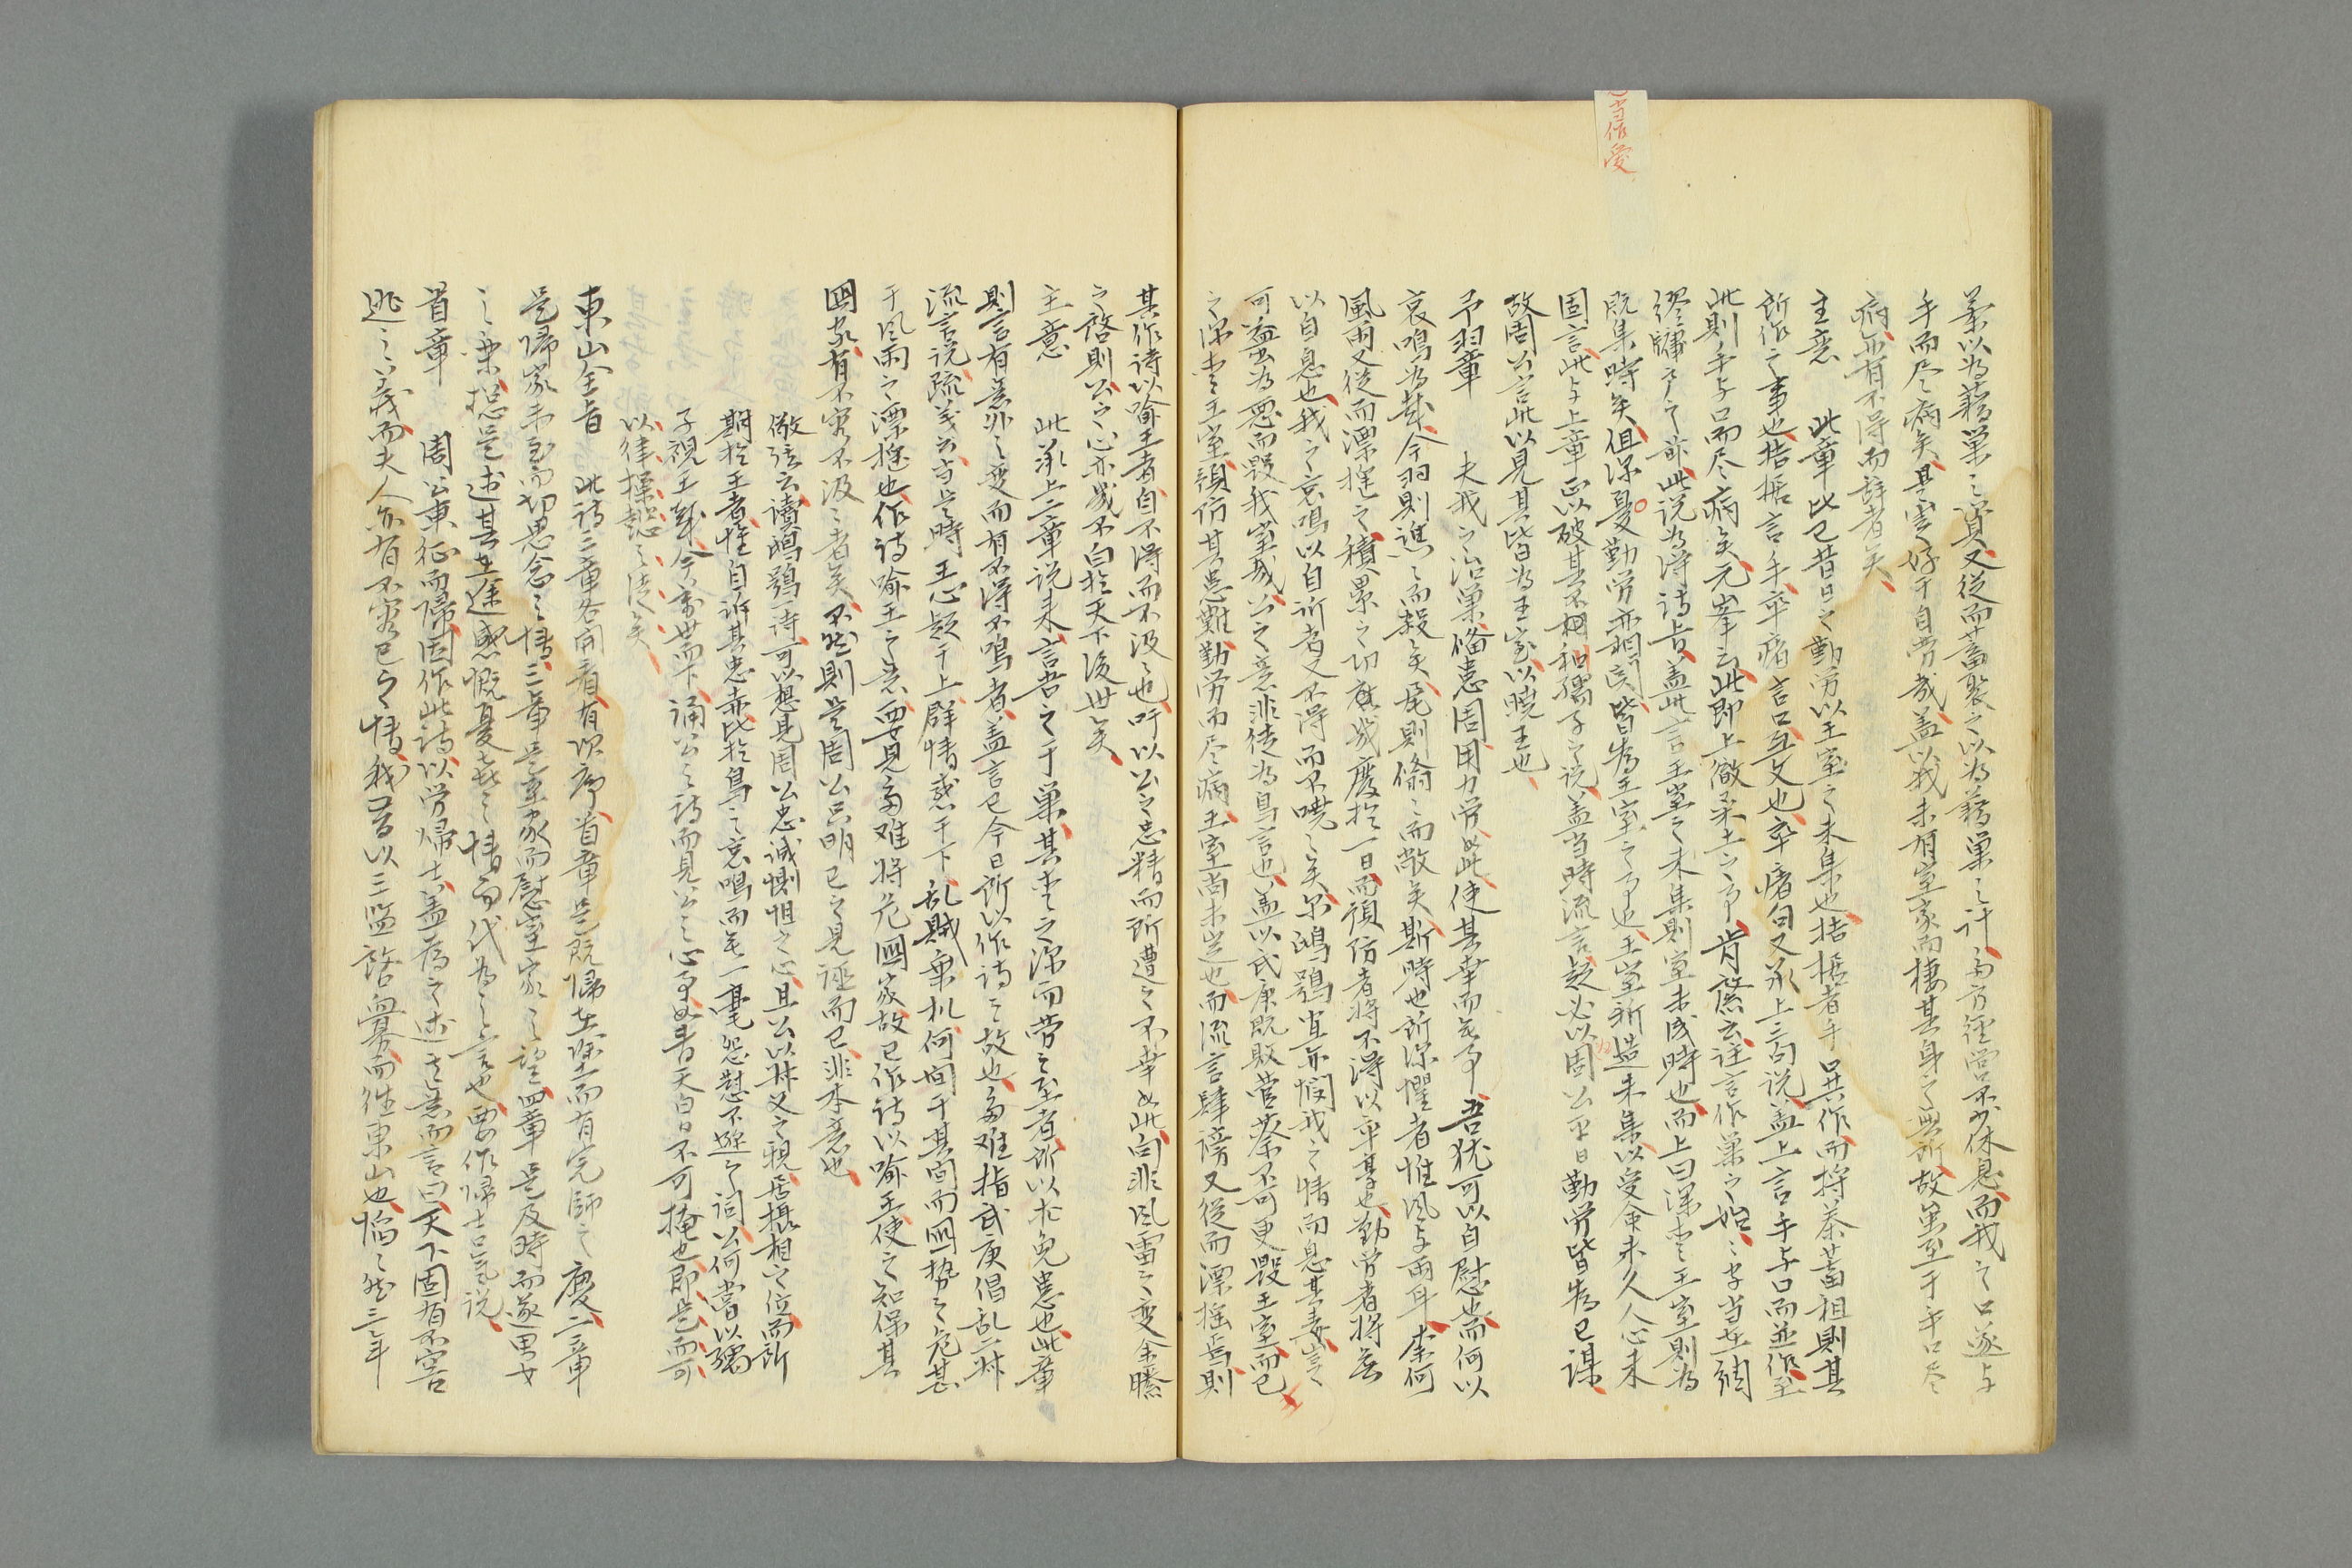 当作愛
業以为藉巢之資又從而蓄聚之以為藉巢之計多方經営不少休息而我之口遂与
手而尽病矣其寔好于自劳哉盖以我未有室家而棲其身之無所故虽至于手口尽
病亦有不得而辞者矣
主意 此章比己昔日之勤劳以王室之未集也拮据者手口共作而捋荼蓄租則其
所作之事也拮据言手卒瘏言口互文也卒瘏句又承上三句说盖上言手与口而並作至
此則手与口而尽病矣元峯云此即上徹桑土之事肯縈云註言作巢之始之字当在綢
繆牖户之前此说为得诗旨盖此言王室之未集則室未成時也而上曰深爱王室則為
既集時矣但深憂勤劳亦相関皆為王室之事也王室新造未集以受命未久人心未
固言此与上章正以破其不利孺子之说盖当時流言疑必以周公平日勤劳皆為己謀
故周公言此以見其皆为王室以曉王也
予羽章 夫我之治巢俻患固用力劳此使其幸而无事吾犹可以自慰也而何以
哀鳴为哉今羽則譙之而殺矣尾則翛之而敝矣斯時也所深懼者惟風与雨耳柰何
風雨又從而漂摇之積累之功廃於一日而預防者将不得以卒享也勤劳者将無
以自息也我之哀鳴以自訴者又不得而不哓之矣尔鴟鴞宜亦憫我之情而息其毒
可盍为恩而毀我室哉公之意非徒为鳥言也盖以武庚既敗管蔡不可更毀王室而已
之深爱王室預防其患難勤劳而尽病王室尚未造也而流言肆謗又從而漂摇焉則
其作诗以喻王者自不得而不汲之也吁以公之忠精而所遭之不幸如此向非風雷之变金縢
之啓則公之心亦幾不白於天下後世矣
主意 此承上二章说来言吾之于巢其爱之深而劳之至者所以求免患也此章
則言有意外之变而有不得不鳴者盖言已今日所以作诗之故也多难指武庚倡乱二叔
流言说疏義云当是時王心疑于上群情惑于下乱賊乗机何间于其间而國勢之危甚
于風雨之漂摇也作诗喻王之意要見多难将危國家故已作诗以喻王使之知保其
國家有不容不汲之者矣不然則是周公只明己之見誣而已非本意也
徹弦云讀鴟鴞一诗可以想見周公忠诚惻怛之心且公以叔父之親居摂相之位而所
期於王者惟自訴其忠赤比於鳥之哀鳴而无一毫怨懟不遜之词公何嘗以孺
子視王哉今萬世而下诵公之诗而見公之心事如青天白日不可掩也即是而可
以律操懿之徒矣
東山全旨 此诗三章各開看有次序首章是既帰在途而有完師之慶二章
是帰家未至而切思念之情三章是至家而慰室家之望四章是及時而遂男女
之樂總是述其在途感慨憂喜之情而代為之言也要作帰士口氣说
首章 周公東征而帰因作此诗以劳帰士盖为之述其意而言曰天下固有不容
逃之義而夫人亦有不容已之情我昔以三監啓衅而徃東山也慆之然三年